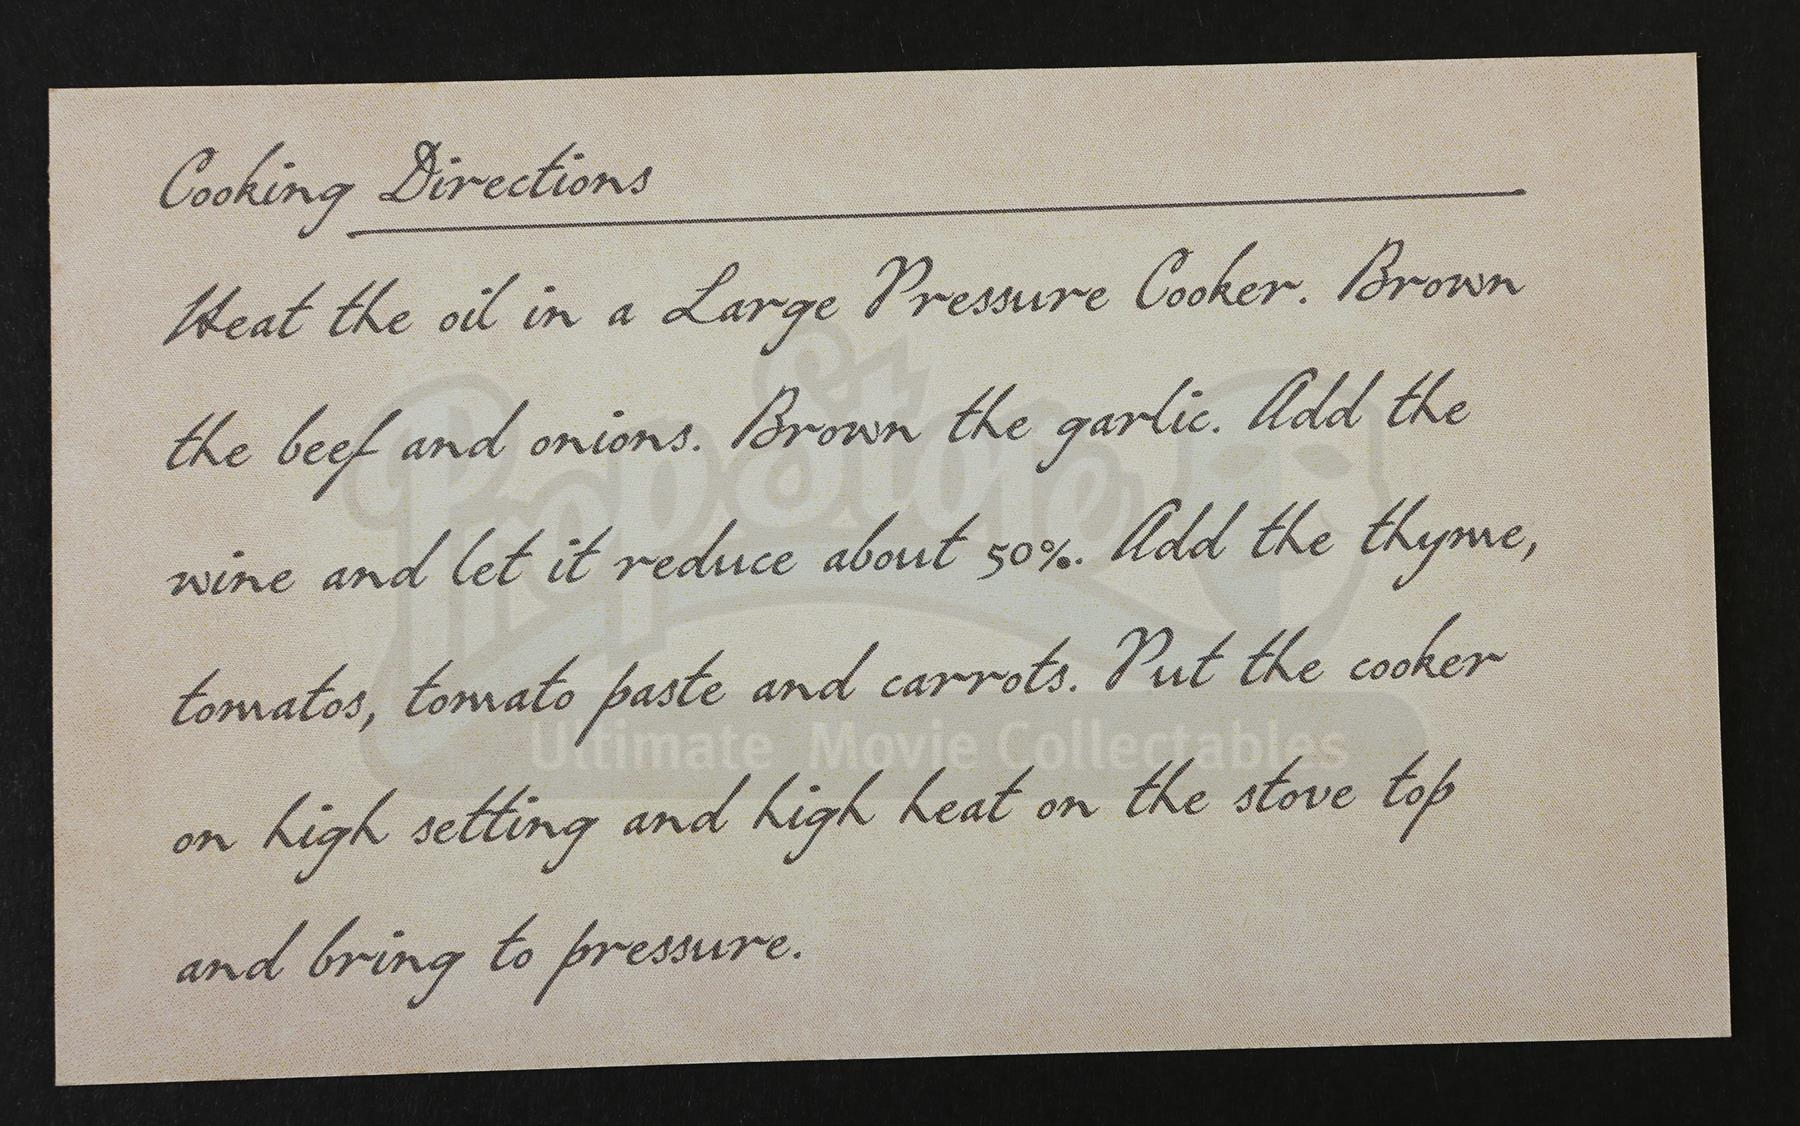 Cooking Directions
Heat the oil in a Large Pressure Cooker. Brown
the beef and onions. Brown the garlic. Add the
wine and let it reduce about 50%. Add the thyme,
tomatos, tomato paste and carrots. Put the cooker
on high setting and high heat on the stove top
and bring to pressure.
PropStore
Ultimate Movie Collectables